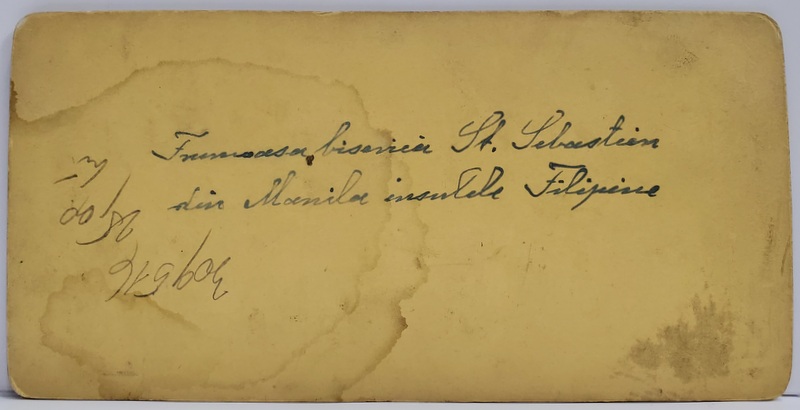 Frumoasa biserica St. Sebastien
din Manila insulele Filipine